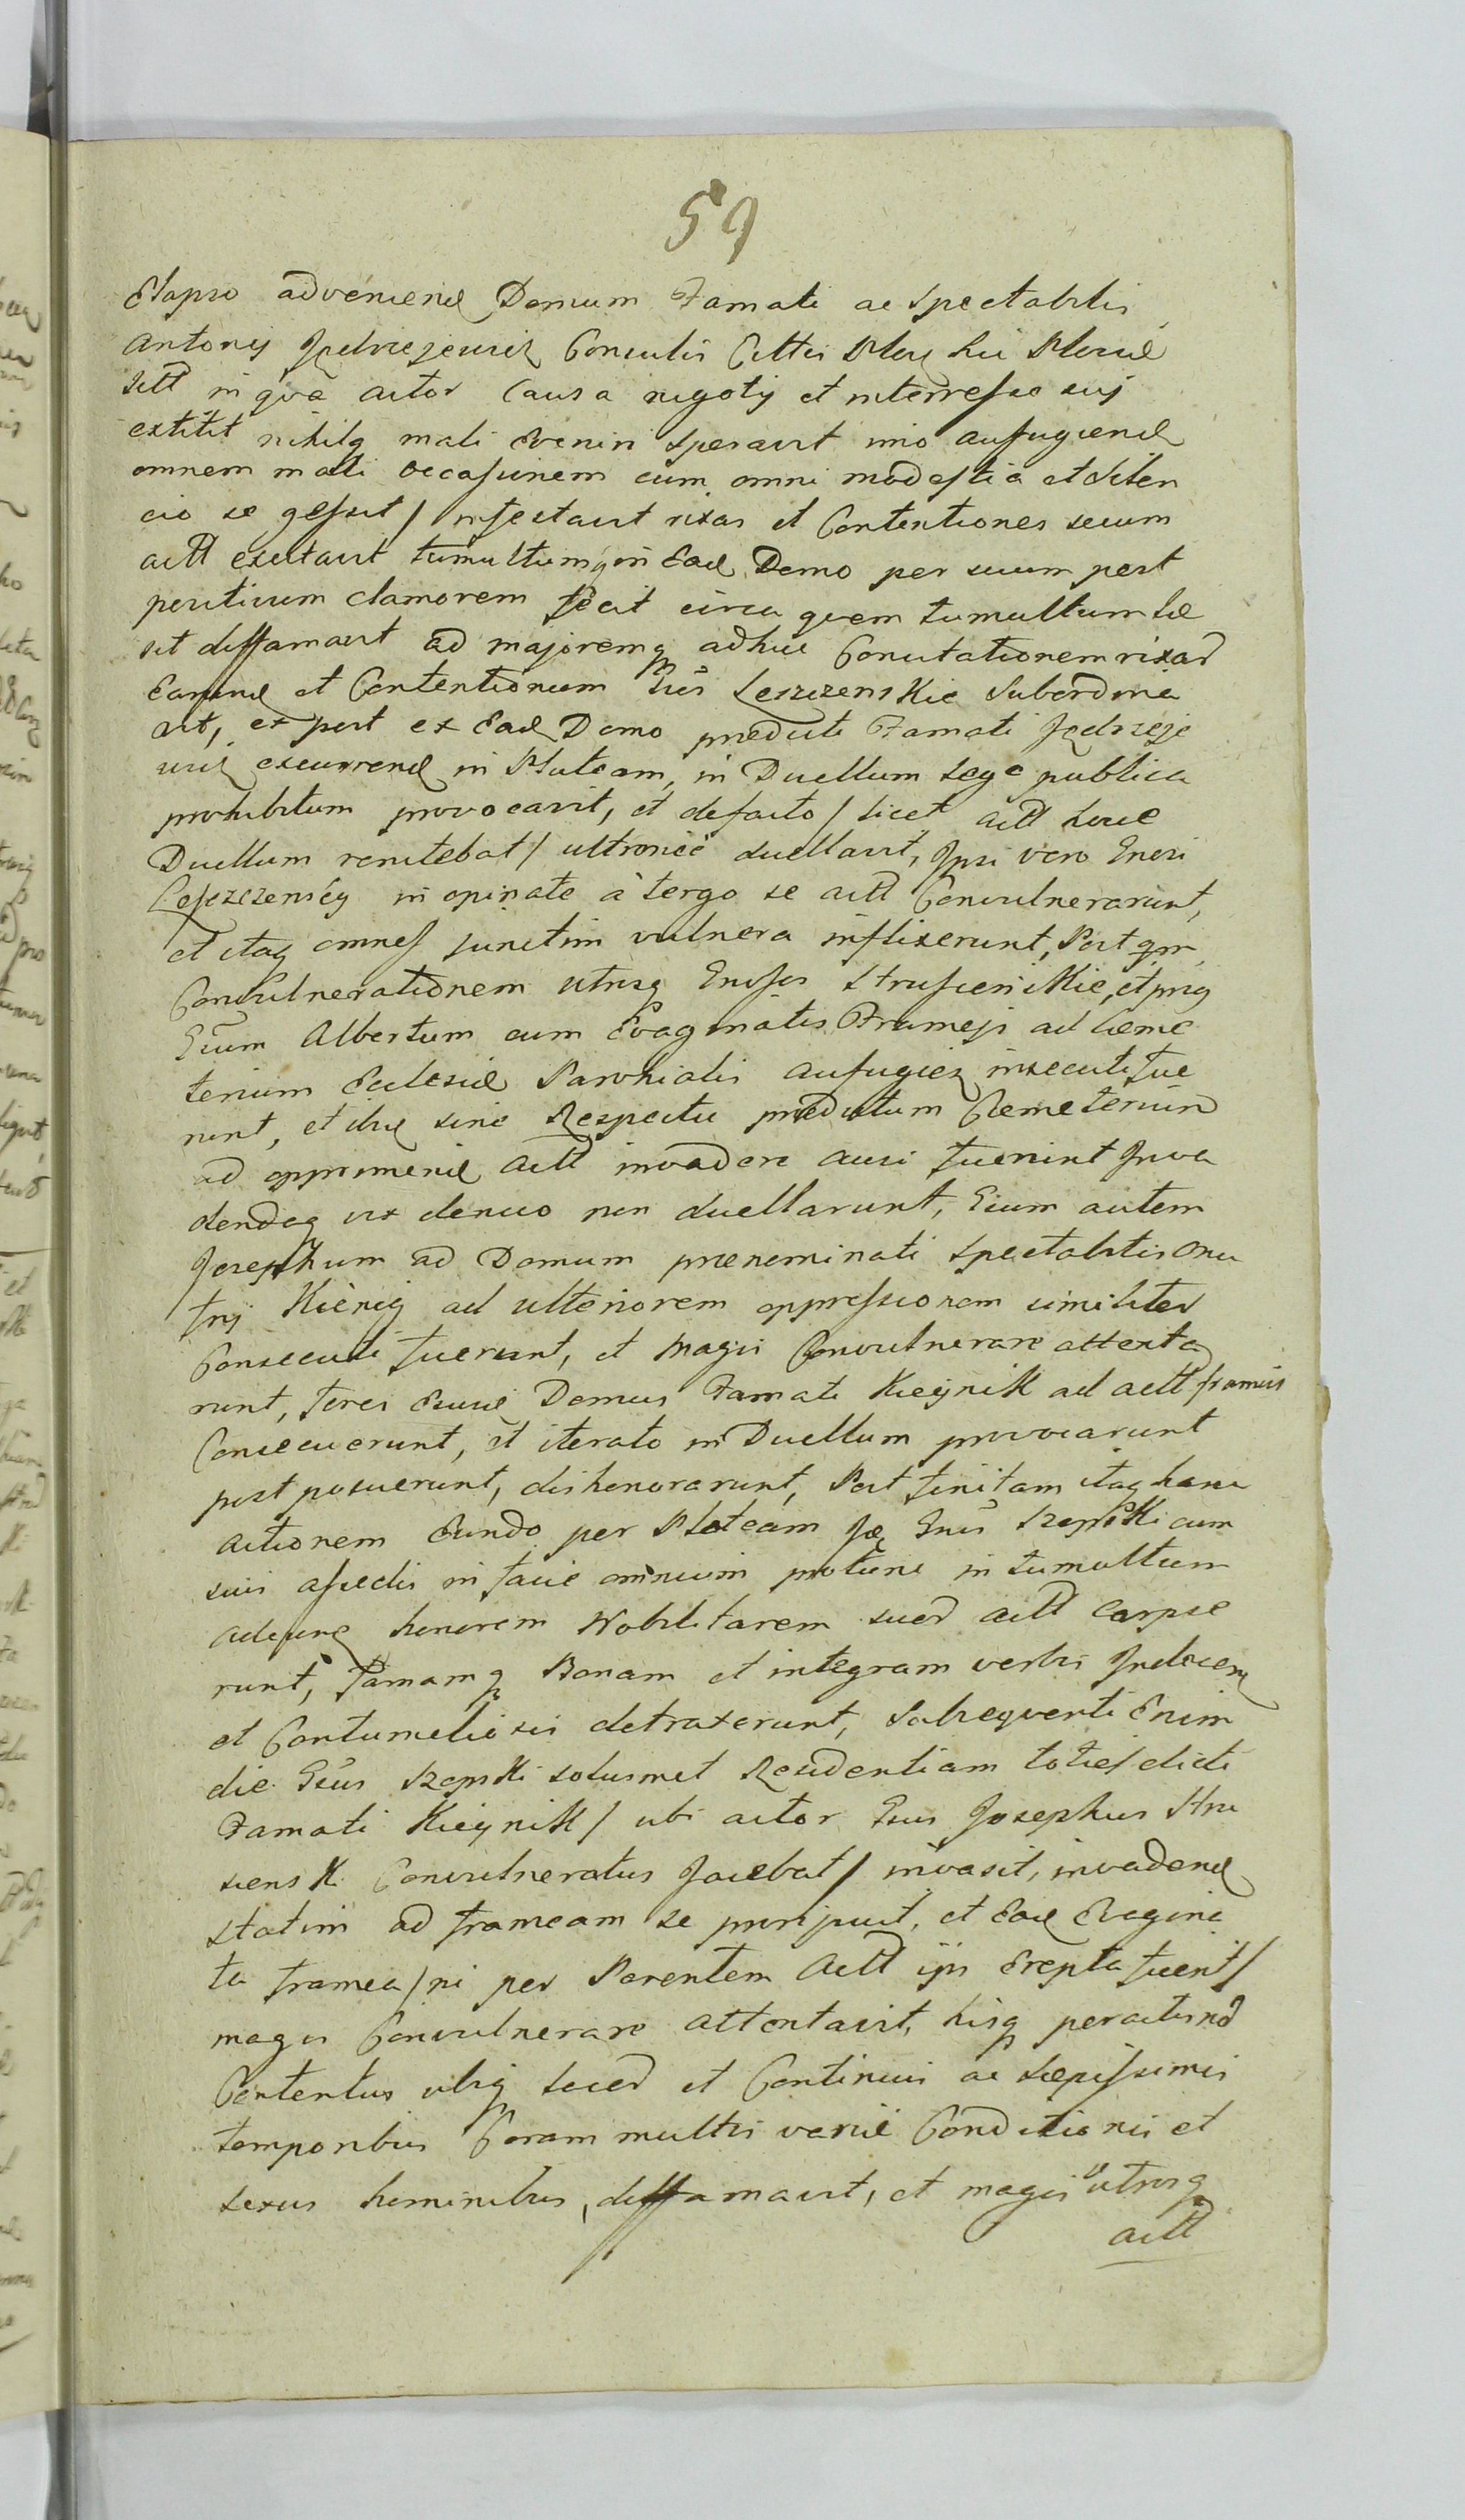 59
Elapso adveniend Domum Famati ac Spectabilis
Antonij Jędrzejewicz Consulis Cittis
sitt in qva actor Causa negotij et interresse suj
extitit nihilq mali Eveniri Speravit imo aufugiend
omnem mali occasionem cum omni modestia et Silen
cio se gessit / infectavit rixas et Contentiones secum
actt excitavit tumultumq in Ead Domo per suum pert
peritivum clamorem fecit circa qvem tumultum
sit diffamavit ad majoremq adhuc Concitationem rixar
Earund et Contentionum Gsus Leszczenskie Subordina
vit, et post ex Ead Domo praedicti Famati Jędrzeje
wicz excurrend in Plateam, in Duellum Lege publica
prohibitum provocavit, et defacto / licet actt hocce
Duellum renitebat / ultronee duellavit, Ipsi vero Gnesi
Leszczenscy in opinate à tergo se actt Convulnerarunt,
et itaq omnes junctim vulnera inflixerunt, Post qm
Convulnerationem utrosq Gnosos Strusienskie, et prius
Gsum Albertum cum Evaginatis Frameis ad Ceme
terium Ecclesie Parohialis aufugien insecuti fue
runt, et ibid sine Respectu praedictum Cemeterium
ad opprimend actt invadere ausi fuerint Inva
dendoq vix denuo non duellarunt, Gsum autem
Josephum ad Domum praenominati Spectabilis Onu
frij Kieniq ad ulteriorem oppressionem similiter
Consecuti fuerunt, et magis Convulnerare attenta
runt, fores Domus Famati Kieynik ad actt frameis
Consecuerunt, et iterato in Duellum provocarunt
post posuerunt, dishonorarunt, Post finitam itaq hanc
actionem Eundo per Plateam Gsus Szepski cum
suis assedis in facie omnium in tumultum
honorem Nobilitarem suor actt carpse
runt, Famamq Bonam et integram verbis Indecen
et Contumeliosis detraxerunt, Subseqventi Enim
die Gsus Szepski solusmet Residentiam toties dicti
Famati Kieynik / ubi actor Gsus Josephus Stru
siensk Convulneratus Jacebat / invasit, invadend
statim ad frameam se proripuit, et Ead Evagina
ta framea / ni per Parentem actt ips Erepta fuerit /
magis Convulnerare attentavit, hisq peractis nd
Contentus ubiq locor et Continuis ac saepissimis
temporibus Coram multis varie Conditionis et
sexus hominibus, diffamavit, et magis utrosq
actt